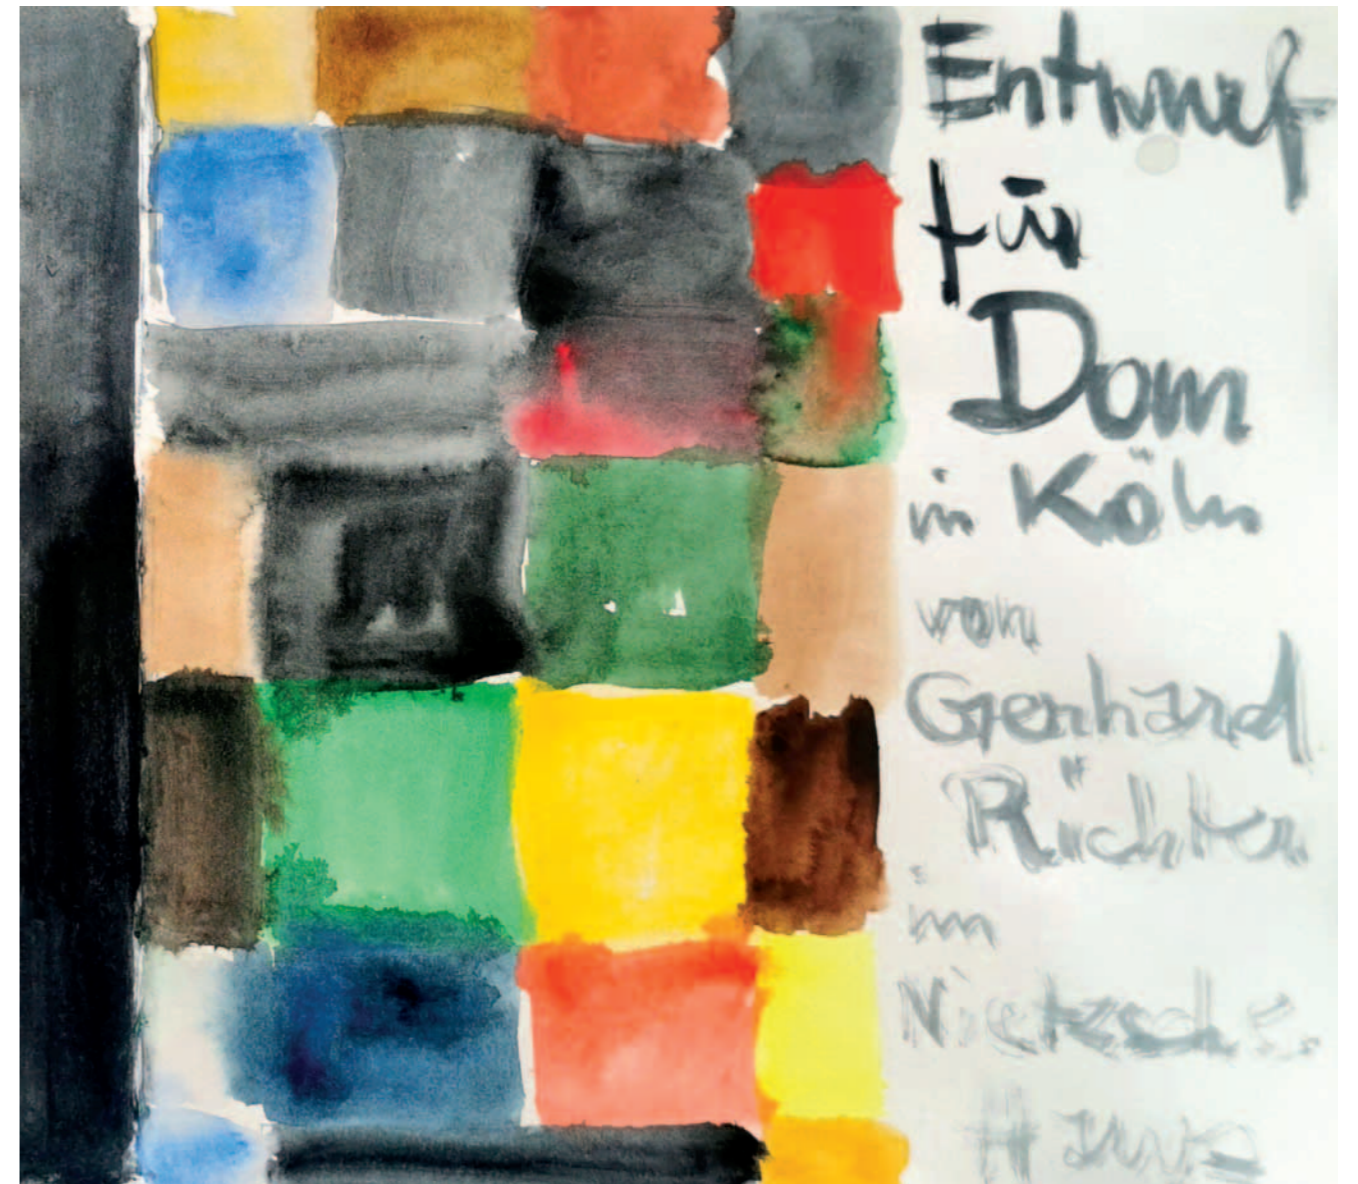 Entwurf
für
Dom
in Köln
von
Gerhard
Richter
im
Nietzsche
Haus